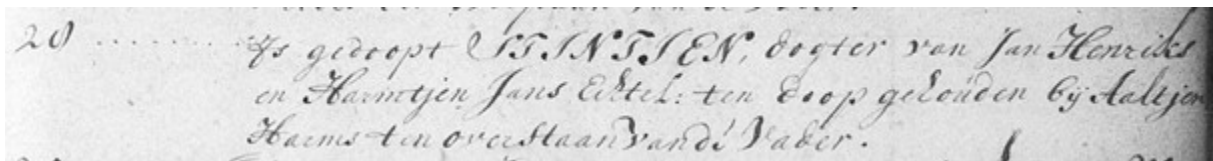 20 ........ Is gedoopt STINTIEN, dogter van Jan Henriks
en Harmtjen Jans Echtel: ten doop gehouden bij Aaltjen
Harms ten overstaan van de Vader.